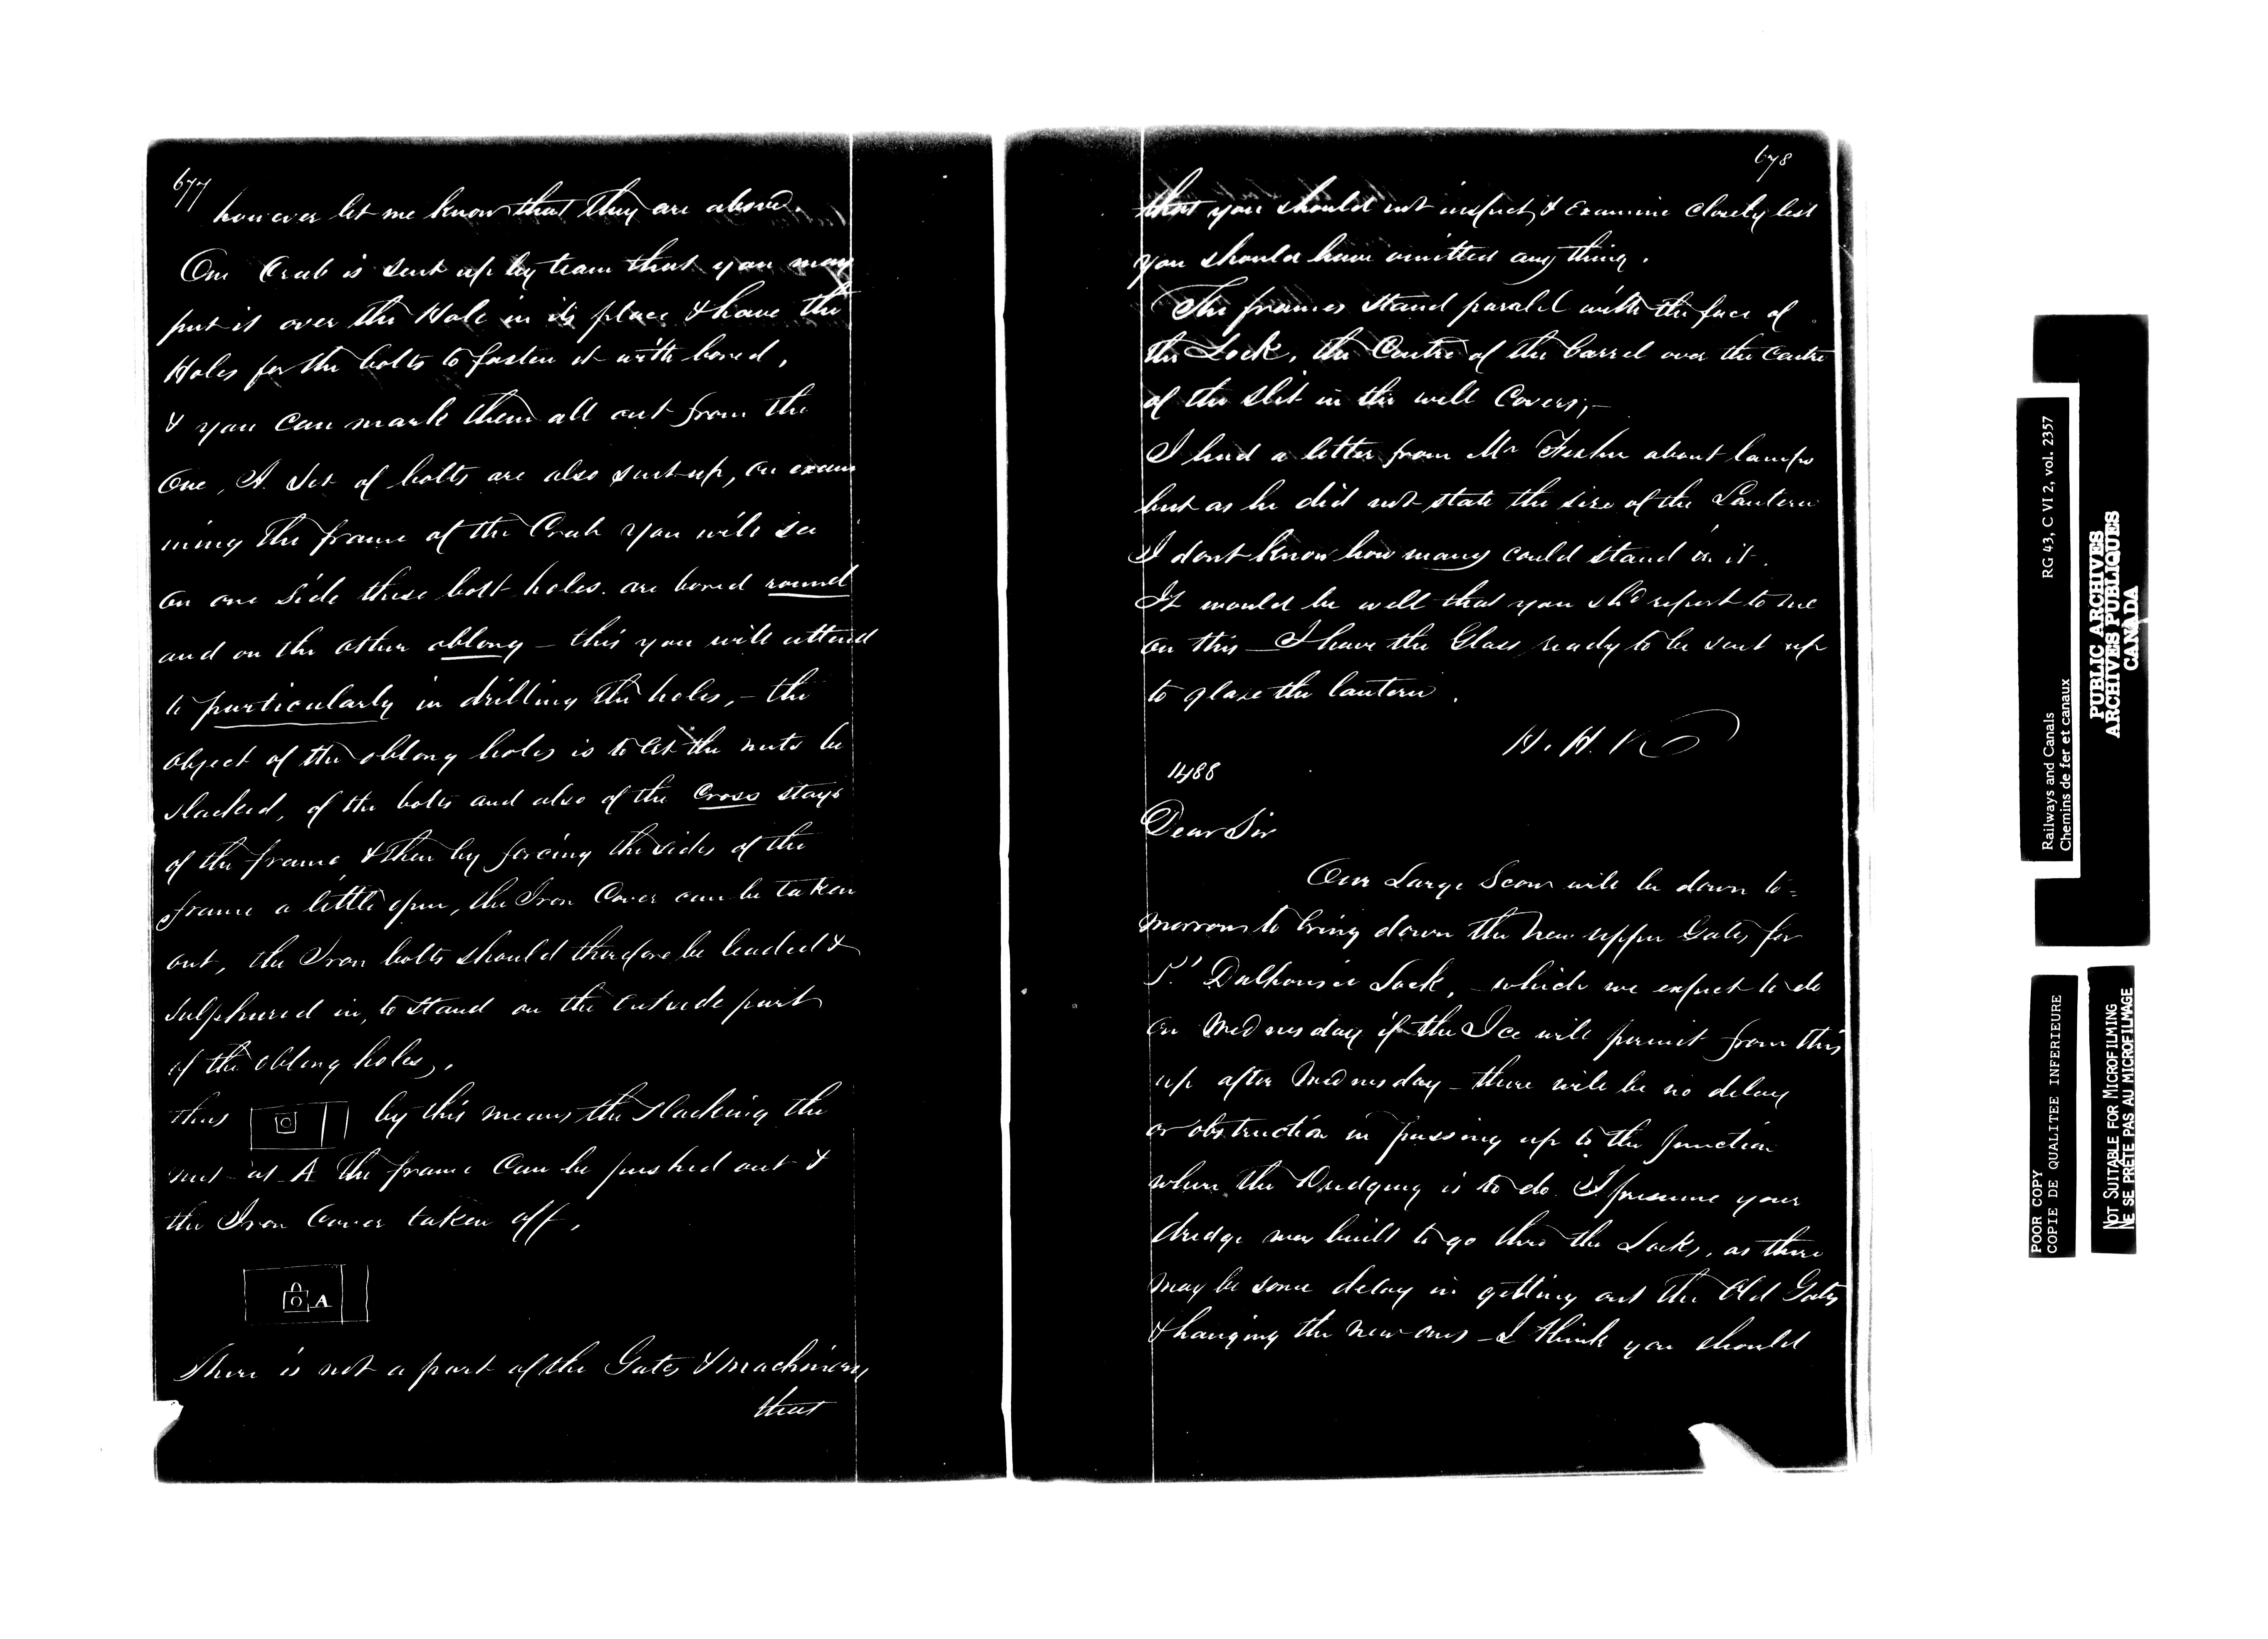 677
however let me know that they are above.
One Crab is sent up by team that you may
put it over the Hole in its place & have the
Holes for the bolts to fasten it with bored,
& you can mark them all out from the
One, A set of bolts are also sent up, on exam
ining the frame of the Crab you will see
on one side these bolt holes are bored round
and on the other oblong – this you will attend
to particularly in drilling the holes, – the
object of the oblong holes is to let the nuts be
slacked, of the bolts and also of the Cross stays
of the frame & then by forcing the sides of the
frame a little open, the Iron Cover can be taken
out, the Iron bolts should therefore be leaded &
sulphured in, to stand on the outside part
of the oblong holes,
thus by this means the slacking the
nut at A the frame Can be pushed out &
the Iron Cover taken off,
A
There is not a part of the Gates & machinery
that
678
that you should not inspect & Examine Closely lest
you should have omitted any thing.
The frames stand paralel with the face of
the Lock, the Centre of the barrel over the Centre
of the slit in the well Covers, –
I had a letter from Mr about lamps
but as he did not state the size of the Lantern
I dont know how many could stand in it.
It would be well that you shd report to me
on this – I have the Glass ready to be sent up
to glaze the lantern.
H. H. K
1488
Dear Sir
Our Large Scow will be down to=
morrow to bring down the new upper Gates for
Pt Dalhousie Lock, – which we expect to do
on Wednesday if the Ice will permit from this
up after Wednesday – there will be no delay
or obstruction in passing up to the Junction
where the Dredging is to do. I presume your
dredge was built to go thro the Locks, as there
may be some delay in getting out the Old Gates
& hanging the new ones – I think you should
RG 43, C VI 2, vol. 2357
Railways and Canals
Chemins de fer et canaux
PUBLIC ARCHIVES
ARCHIVES PUBLIQUES
CANADA
POOR COPY
COPIE DE QUALITEE INFERIEURE
NOT SUITABLE FOR MICROFILMING
NE SE PRÊTE PAS AU MICROFILMAGE